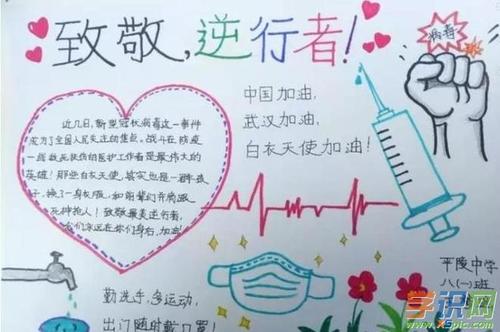 致敬,逆行者!
病毒
中国加油,
武汉加油,
白衣天使加油!
近几日,新型冠状病毒这一事件
成为了全国人民关注的焦点。战斗在防疫
一线救死扶伤的医护工作者是最伟大的
英雄!那些白衣天使,其实也是一群孩
子,换了一身衣服,和前辈们齐
死神抢人!致敬最美逆行者,
你们身后,加油!
勤洗手,多运动,
出门随时戴口罩
平陵中学
八(一)班
学识网
www.xspic.com